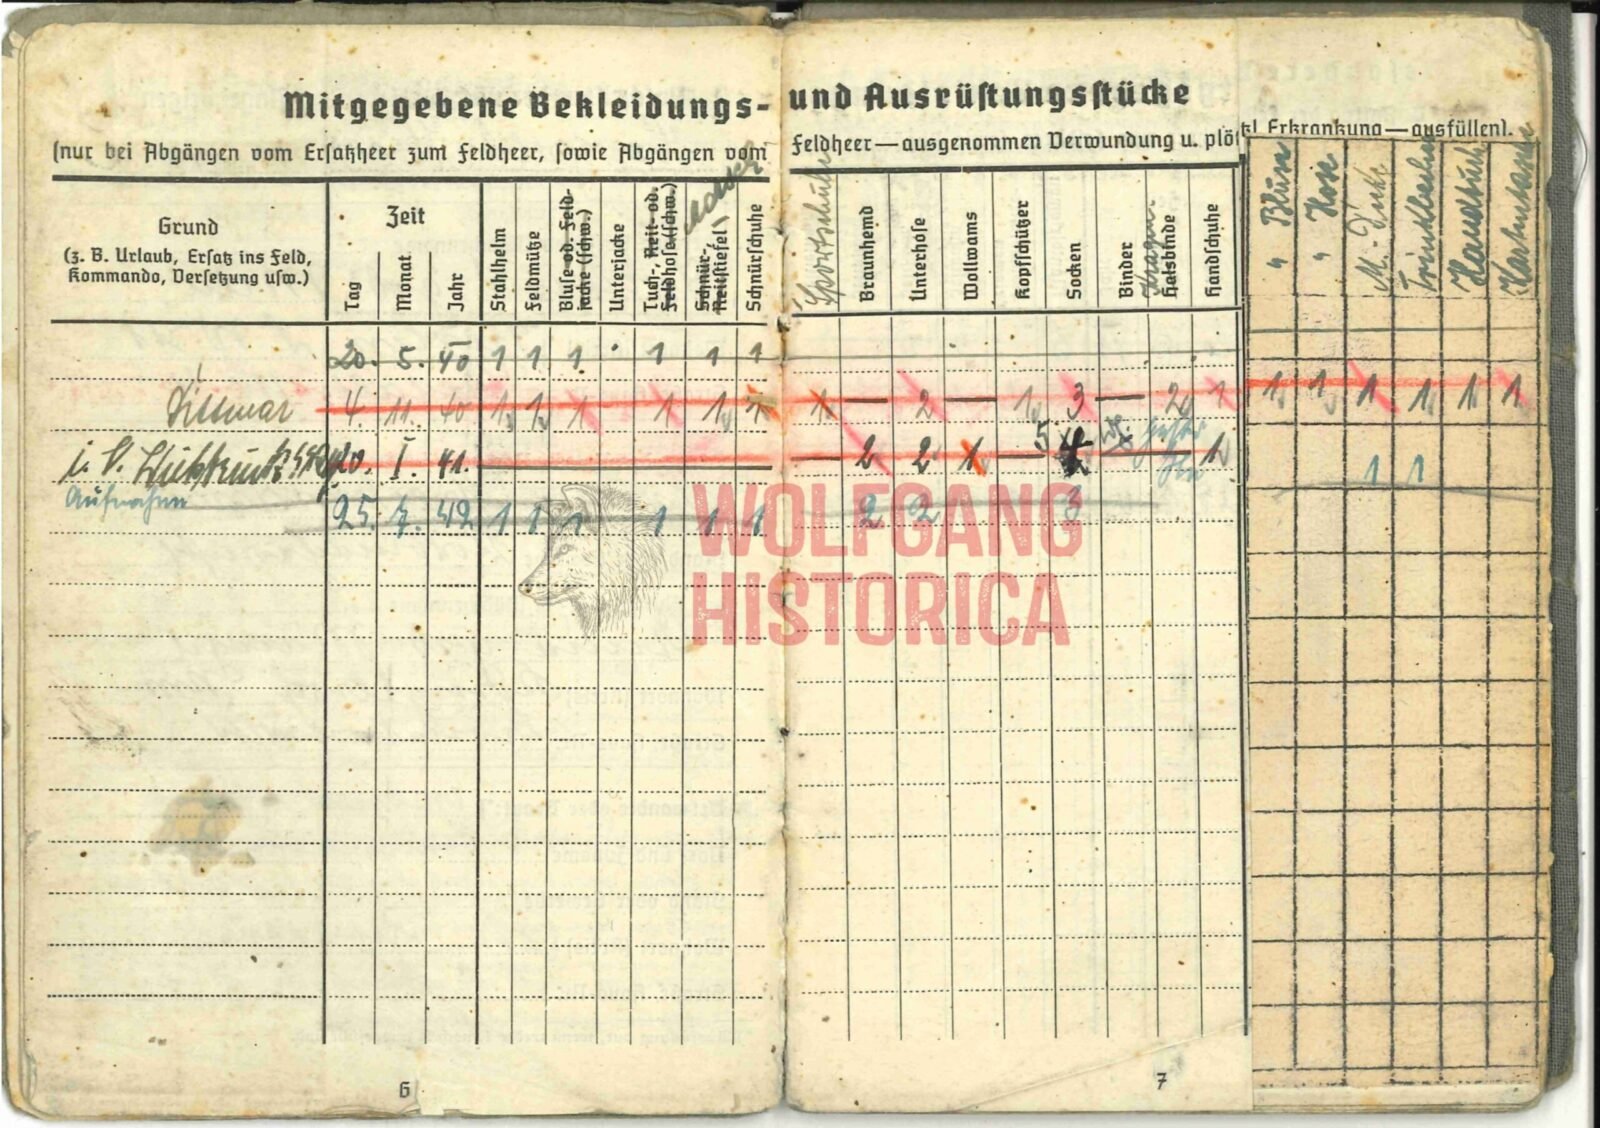 Mitgegebene Bekleidungs- und Ausrüstungsstücke
(nur bei Abgängen vom Ersatzheer zum Feldheer, sowie Abgängen vom Feldheer — ausgenommen Verwundung u. plö tzl Erkrankung — ausfüllen).
Grund
(z. B. Urlaub, Ersatz ins Feld,
Kommando, Versetzung usw.)
Zeit
Tag
Monat
Jahr
Stahlhelm
Feldmütze
Bluse od. Feld-
jacke (schw.)
Unterjacke
Tuch-, Reit- od.
Feldhose (schw.)
Schnür-
Reitstiefel
Schnürschuhe
Sportschuhe
Braunhemd
Unterhose
Wollwams
Kopfschützer
Socken
Binder
Kragen-
Halsbinde
Handschuhe
" Bluse
" Hose
Handtuch
20. 5. 40 1 1 1 1 1 1
Dittmar 4. 11. 40 1 1 1 1 1 1 1 — 2 — 1 3 — 2 1 1 1 1 1 1 1
i. V. 20. I. 41. — 2 2 1 — 5 — 1
1 1
Aufnahme 25. 7. 42 1 1 1 1 1 1 2 2 3
WOLFGANG
HISTORICA
6
7